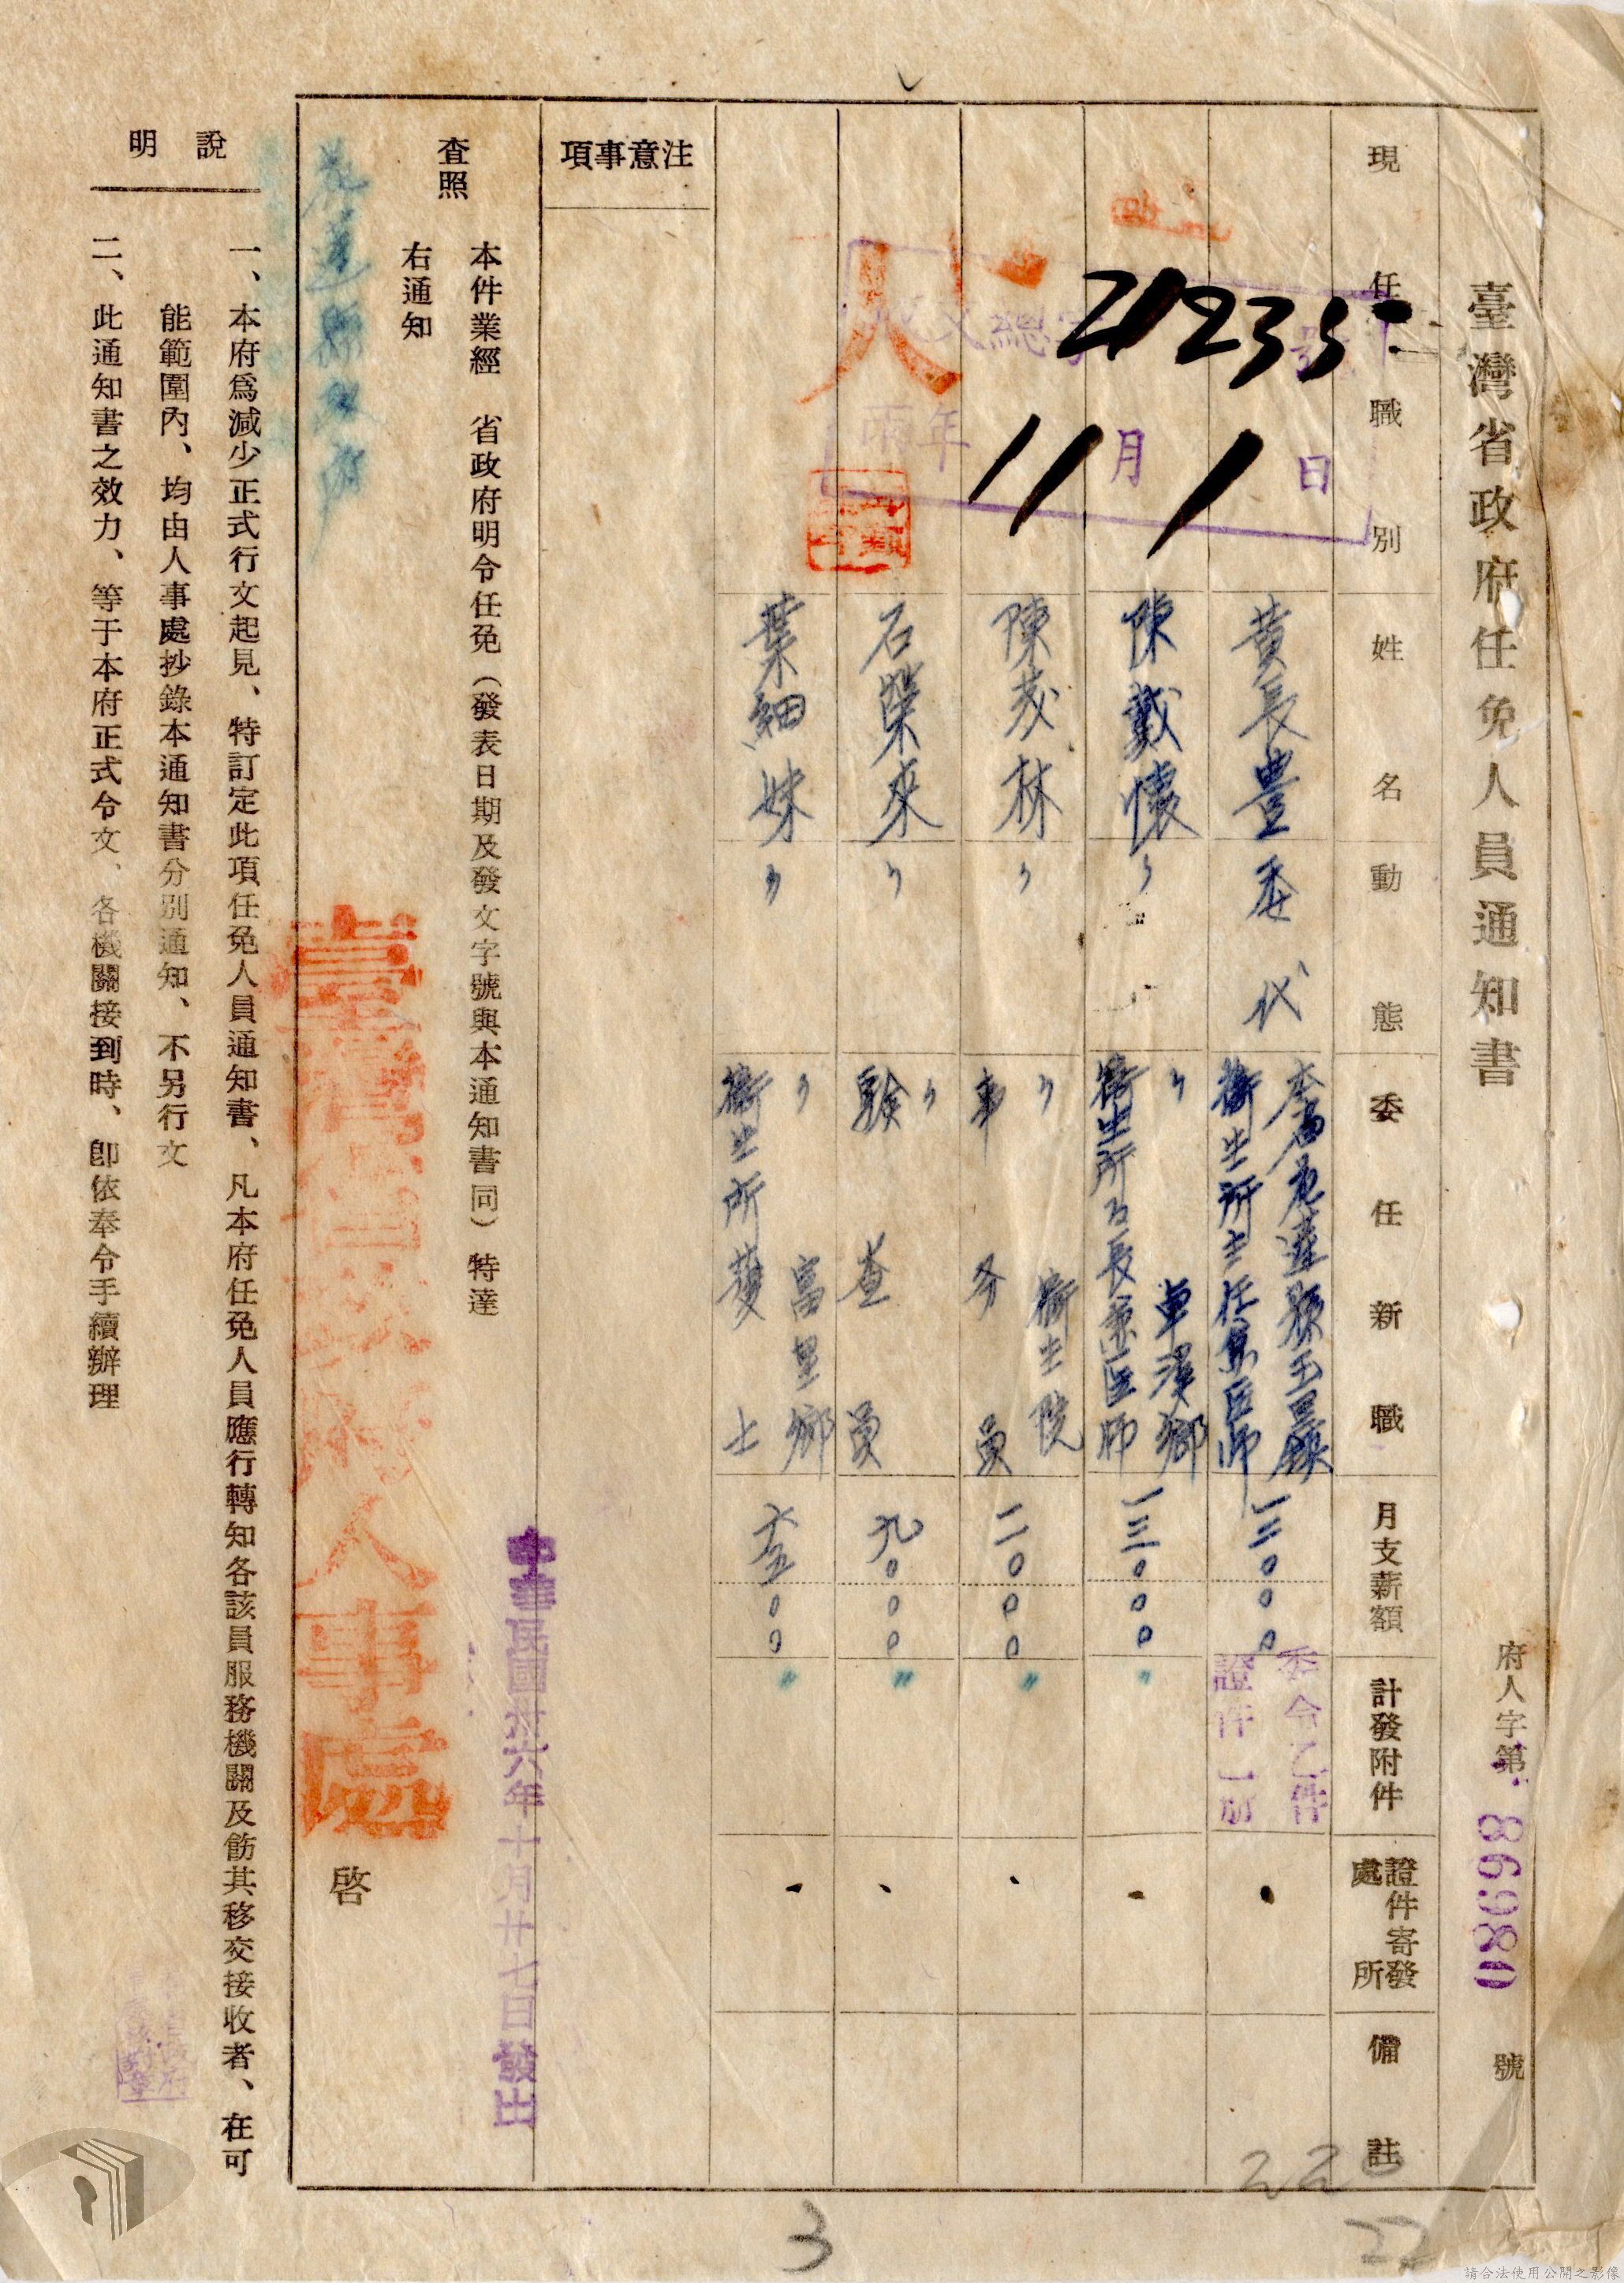 臺灣省政府任免人員通知書
府人字第 86980 號
現任職別
姓名
動態
委任新職
月支薪額
計發附件
證件寄發處所
備註
黃長豊
委代
本省花蓮縣玉里鎮
衛生所主任兼医師
一三〇〇〇
委令乙件
證件一册
陳戴懷
〃
〃 卓溪鄉
衛生所所長兼医師
一三〇〇〇
〃
陳茂林
〃
〃 衛生院
事務員
一〇〇〇
〃
石榮來
〃
〃
檢查員
九〇〇〇
〃
葉細妹
〃
〃 富里鄉
衛生所護士
六五〇〇
〃
收文總字 21235 號
年 11 月 1 日
注意事項
本件業經 省政府明令任免(發表日期及發文字號與本通知書同)特達
查照
右通知
花蓮縣政府
臺灣省政府人事處 啓
中華民國卅六年十月廿七日發出
說明
一、本府爲減少正式行文起見、特訂定此項任免人員通知書、凡本府任免人員應行轉知各該員服務機關及飭其移交接收者、在可
能範圍內、均由人事處抄錄本通知書分別通知、不另行文
二、此通知書之效力、等于本府正式令文、各機關接到時、卽依奉令手續辦理
3
22
請合法使用公開之影像